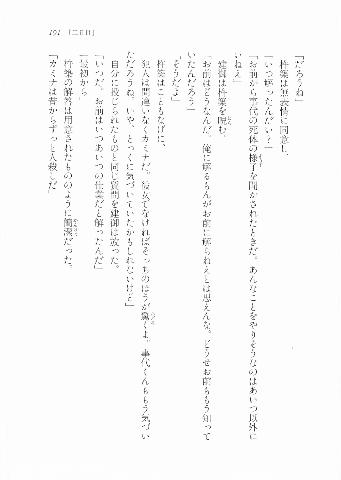 191 [二日目]
「だろうね」
杵築は無表情に同意し、
「いつ解ったんだい？」
「お前から事代の死体の様子を聞かされたときだ。あんなことをやりそうなのはあいつ以外に
いねえ」
建御は杵築を睨む。
「お前はどうなんだ。俺に解るもんがお前に解らねえとは思えんな。どうせお前ももう知って
いたんだろう」
「そうだよ」
杵築はこともなげに、
「犯人は間違いなくカミナだ。彼女でなければそっちのほうが驚くよ。事代くんももう気づい
ただろうね。いや、とっくに気づいていたかもしれないけど」
自分に投じられたものと同じ質問を建御は放った。
「いつだ。お前はいつあいつの仕業だと解ったんだ」
「最初から」
杵築の解答は用意されたもののように簡潔だった。
「カミナは昔からずっと人殺しだ」